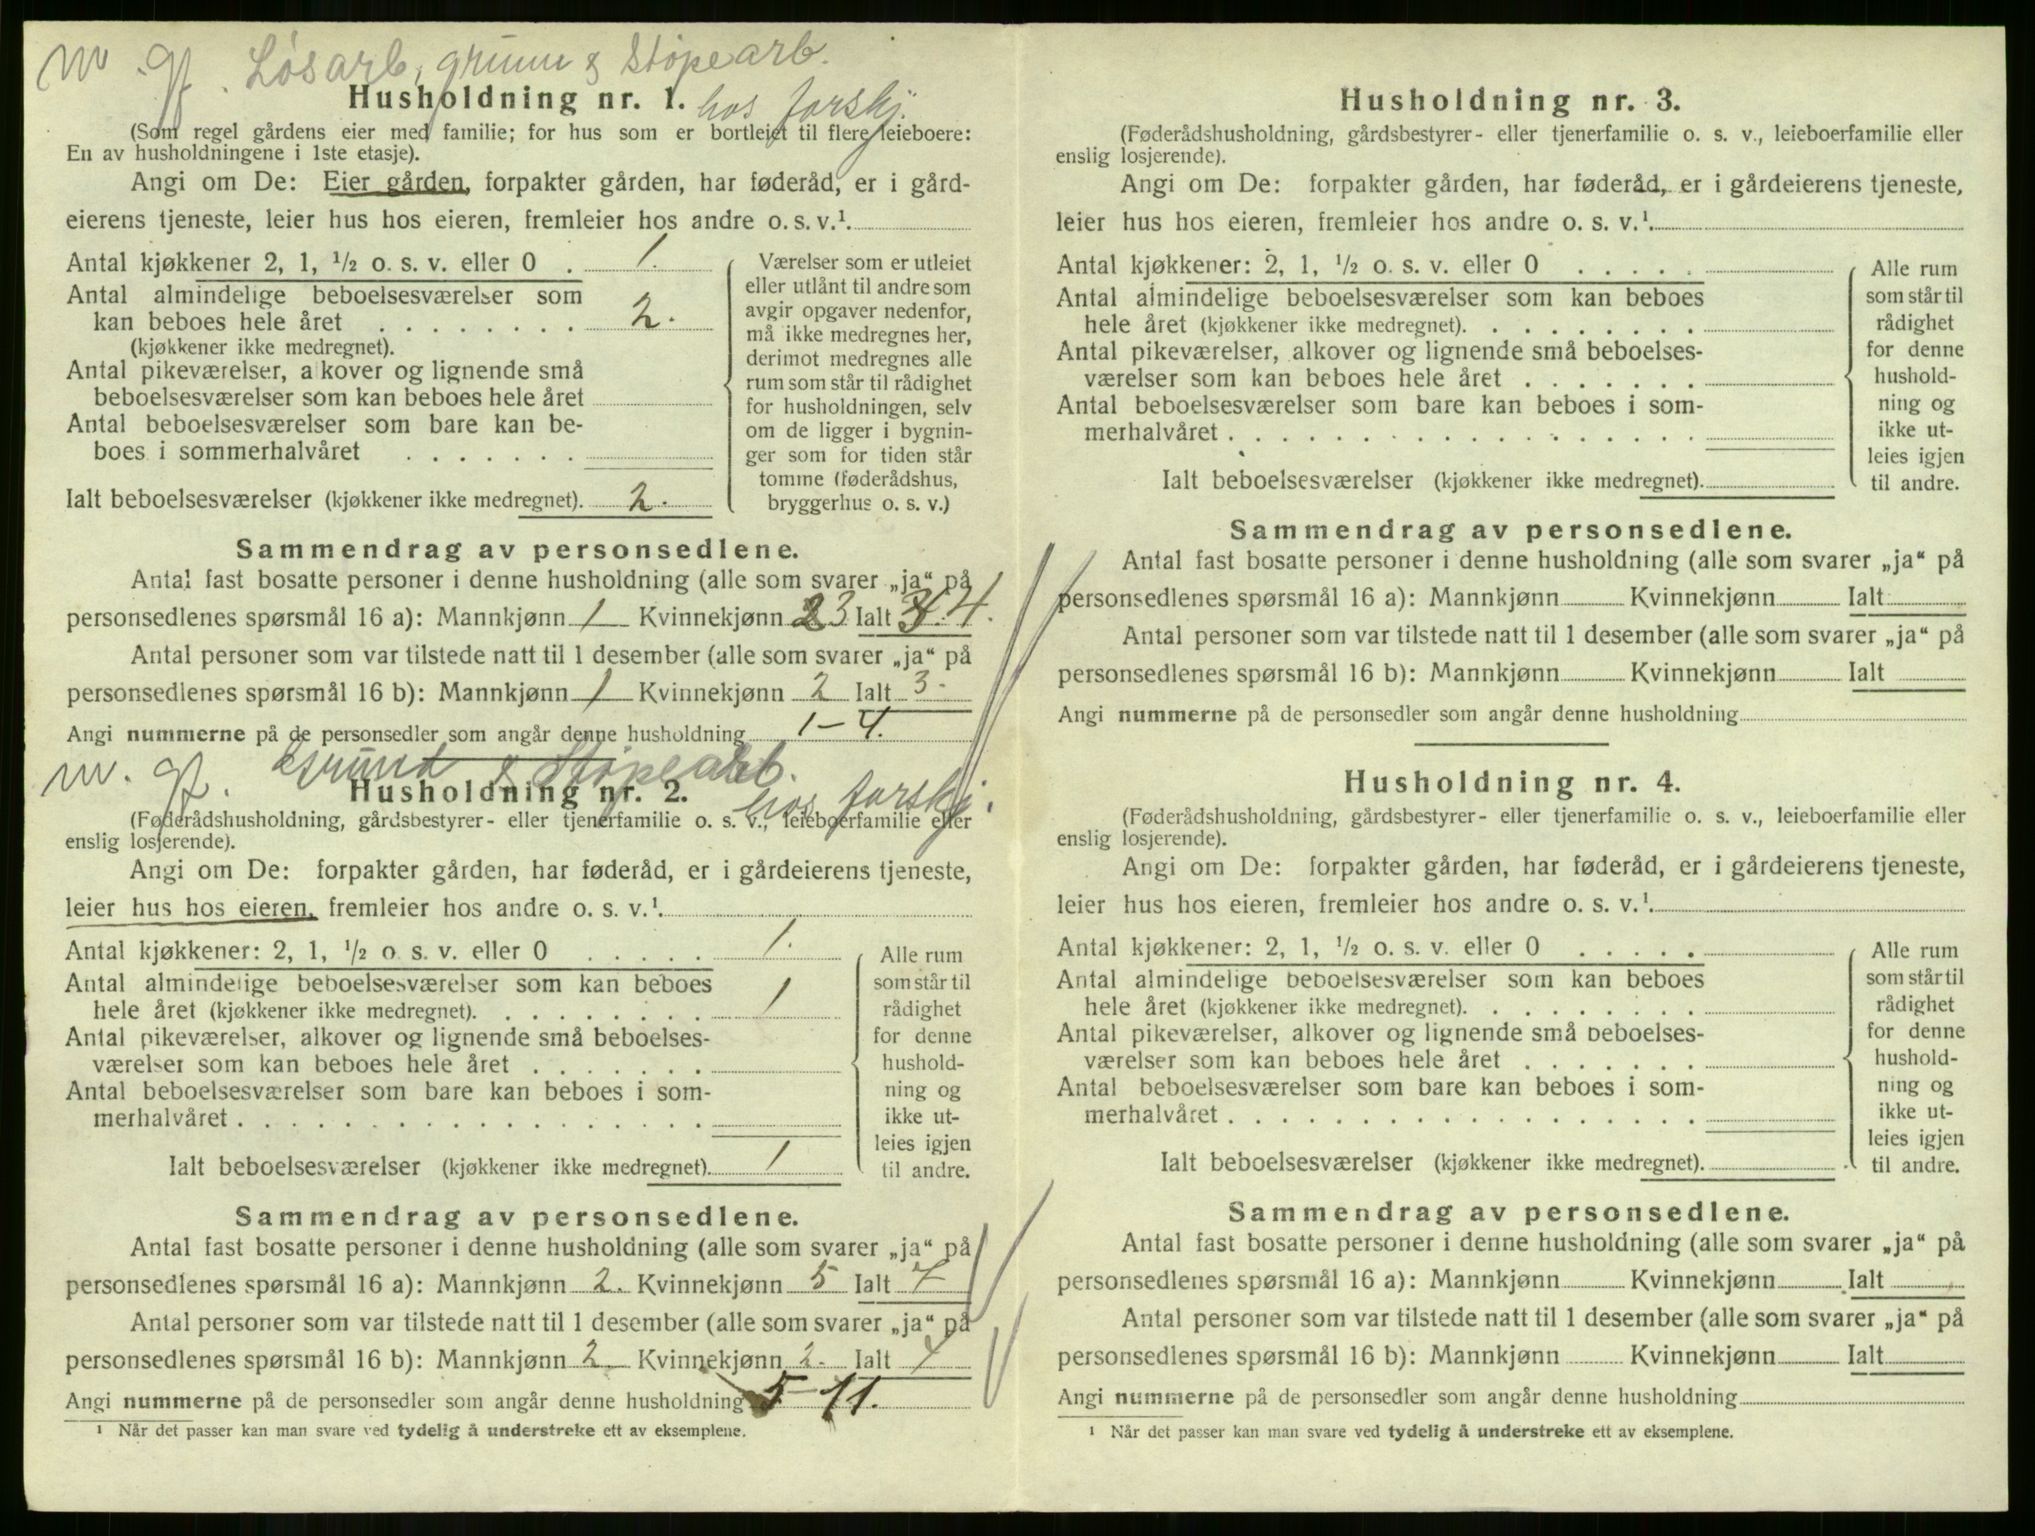 m. gf. Løsarb, grunn & Støpearb.
Husholdning nr. 1. hos forskj.
(Som regel gårdens eier med familie; for hus som er bortleiet til flere leieboere:
En av husholdningene i 1ste etasje).
Angi om De: Eier gården, forpakter gården, har føderåd, er i gård-
eierens tjeneste, leier hus hos eieren, fremleier hos andre o. s. v.¹.
Antal kjøkkener 2, 1, ½ o. s. v. eller 0 . 1.
Antal almindelige beboelsesværelser som
kan beboes hele året . . . . . . . . 2.
(kjøkkener ikke medregnet).
Antal pikeværelser, alkover og lignende små
beboelsesværelser som kan beboes hele året
Antal beboelsesværelser som bare kan be-
boes i sommerhalvåret . . . . . . .
Ialt beboelsesværelser (kjøkkener ikke medregnet). 2.
Værelser som er utleiet
eller utlånt til andre som
avgir opgaver nedenfor,
må ikke medregnes her,
derimot medregnes alle
rum som står til rådighet
for husholdningen, selv
om de ligger i bygnin-
ger som for tiden står
tomme (føderådshus,
bryggerhus o. s. v.)
Sammendrag av personsedlene.
Antal fast bosatte personer i denne husholdning (alle som svarer „ja“ på
personsedlenes spørsmål 16 a): Mannkjønn 1 Kvinnekjønn 2 3 Ialt 3 4.
Antal personer som var tilstede natt til 1 desember (alle som svarer „ja“ på
personsedlenes spørsmål 16 b): Mannkjønn 1 Kvinnekjønn 2 Ialt 3.
Angi nummerne på de personsedler som angår denne husholdning 1-4.
m. gf. Grunn & Støpearb.
Husholdning nr. 2. hos forskj.
(Føderådshusholdning, gårdsbestyrer- eller tjenerfamilie o. s. v., leieboerfamilie eller
enslig losjerende).
Angi om De: forpakter gården, har føderåd, er i gårdeierens tjeneste,
leier hus hos eieren, fremleier hos andre o. s. v.¹.
Antal kjøkkener: 2, 1, ½ o. s. v. eller 0 . . . . . 1.
Antal almindelige beboelsesværelser som kan beboes
hele året (kjøkkener ikke medregnet). . . . . . . . . 1
Antal pikeværelser, alkover og lignende små beboelses-
værelser som kan beboes hele året . . . . . . .
Antal beboelsesværelser som bare kan beboes i som-
merhalvåret . . . . . . . . . . . . . . . . . .
Ialt beboelsesværelser (kjøkkener ikke medregnet). 1
Alle rum
som står til
rådighet
for denne
hushold-
ning og
ikke ut-
leies igjen
til andre.
Sammendrag av personsedlene.
Antal fast bosatte personer i denne husholdning (alle som svarer „ja“ på
personsedlenes spørsmål 16 a): Mannkjønn 2. Kvinnekjønn 5 Ialt 7
Antal personer som var tilstede natt til 1 desember (alle som svarer „ja“ på
personsedlenes spørsmål 16 b): Mannkjønn 2 Kvinnekjønn 2. Ialt 4
Angi nummerne på de personsedler som angår denne husholdning 5-11.
¹ Når det passer kan man svare ved tydelig å understreke ett av eksemplene.
Husholdning nr. 3.
(Føderådshusholdning, gårdsbestyrer- eller tjenerfamilie o. s. v., leieboerfamilie eller
enslig losjerende).
Angi om De: forpakter gården, har føderåd, er i gårdeierens tjeneste,
leier hus hos eieren, fremleier hos andre o. s. v.¹.
Antal kjøkkener: 2, 1, ½ o. s. v. eller 0 . . . . .
Antal almindelige beboelsesværelser som kan beboes
hele året (kjøkkener ikke medregnet). . . . . . . . .
Antal pikeværelser, alkover og lignende små beboelses-
værelser som kan beboes hele året . . . . . . .
Antal beboelsesværelser som bare kan beboes i som-
merhalvåret . . . . . . . . . . . . . . . . . .
Ialt beboelsesværelser (kjøkkener ikke medregnet).
Alle rum
som står til
rådighet
for denne
hushold-
ning og
ikke ut-
leies igjen
til andre.
Sammendrag av personsedlene.
Antal fast bosatte personer i denne husholdning (alle som svarer „ja“ på
personsedlenes spørsmål 16 a): Mannkjønn Kvinnekjønn Ialt
Antal personer som var tilstede natt til 1 desember (alle som svarer „ja“ på
personsedlenes spørsmål 16 b): Mannkjønn Kvinnekjønn Ialt
Angi nummerne på de personsedler som angår denne husholdning
Husholdning nr. 4.
(Føderådshusholdning, gårdsbestyrer- eller tjenerfamilie o. s. v., leieboerfamilie eller
enslig losjerende).
Angi om De: forpakter gården, har føderåd, er i gårdeierens tjeneste,
leier hus hos eieren, fremleier hos andre o. s. v.¹.
Antal kjøkkener: 2, 1, ½ o. s. v. eller 0 . . . . .
Antal almindelige beboelsesværelser som kan beboes
hele året (kjøkkener ikke medregnet). . . . . . . . .
Antal pikeværelser, alkover og lignende små beboelses-
værelser som kan beboes hele året . . . . . . .
Antal beboelsesværelser som bare kan beboes i som-
merhalvåret . . . . . . . . . . . . . . . . . .
Ialt beboelsesværelser (kjøkkener ikke medregnet).
Alle rum
som står til
rådighet
for denne
hushold-
ning og
ikke ut-
leies igjen
til andre.
Sammendrag av personsedlene.
Antal fast bosatte personer i denne husholdning (alle som svarer „ja“ på
personsedlenes spørsmål 16 a): Mannkjønn Kvinnekjønn Ialt
Antal personer som var tilstede natt til 1 desember (alle som svarer „ja“ på
personsedlenes spørsmål 16 b): Mannkjønn Kvinnekjønn Ialt
Angi nummerne på de personsedler som angår denne husholdning
¹ Når det passer kan man svare ved tydelig å understreke ett av eksemplene.